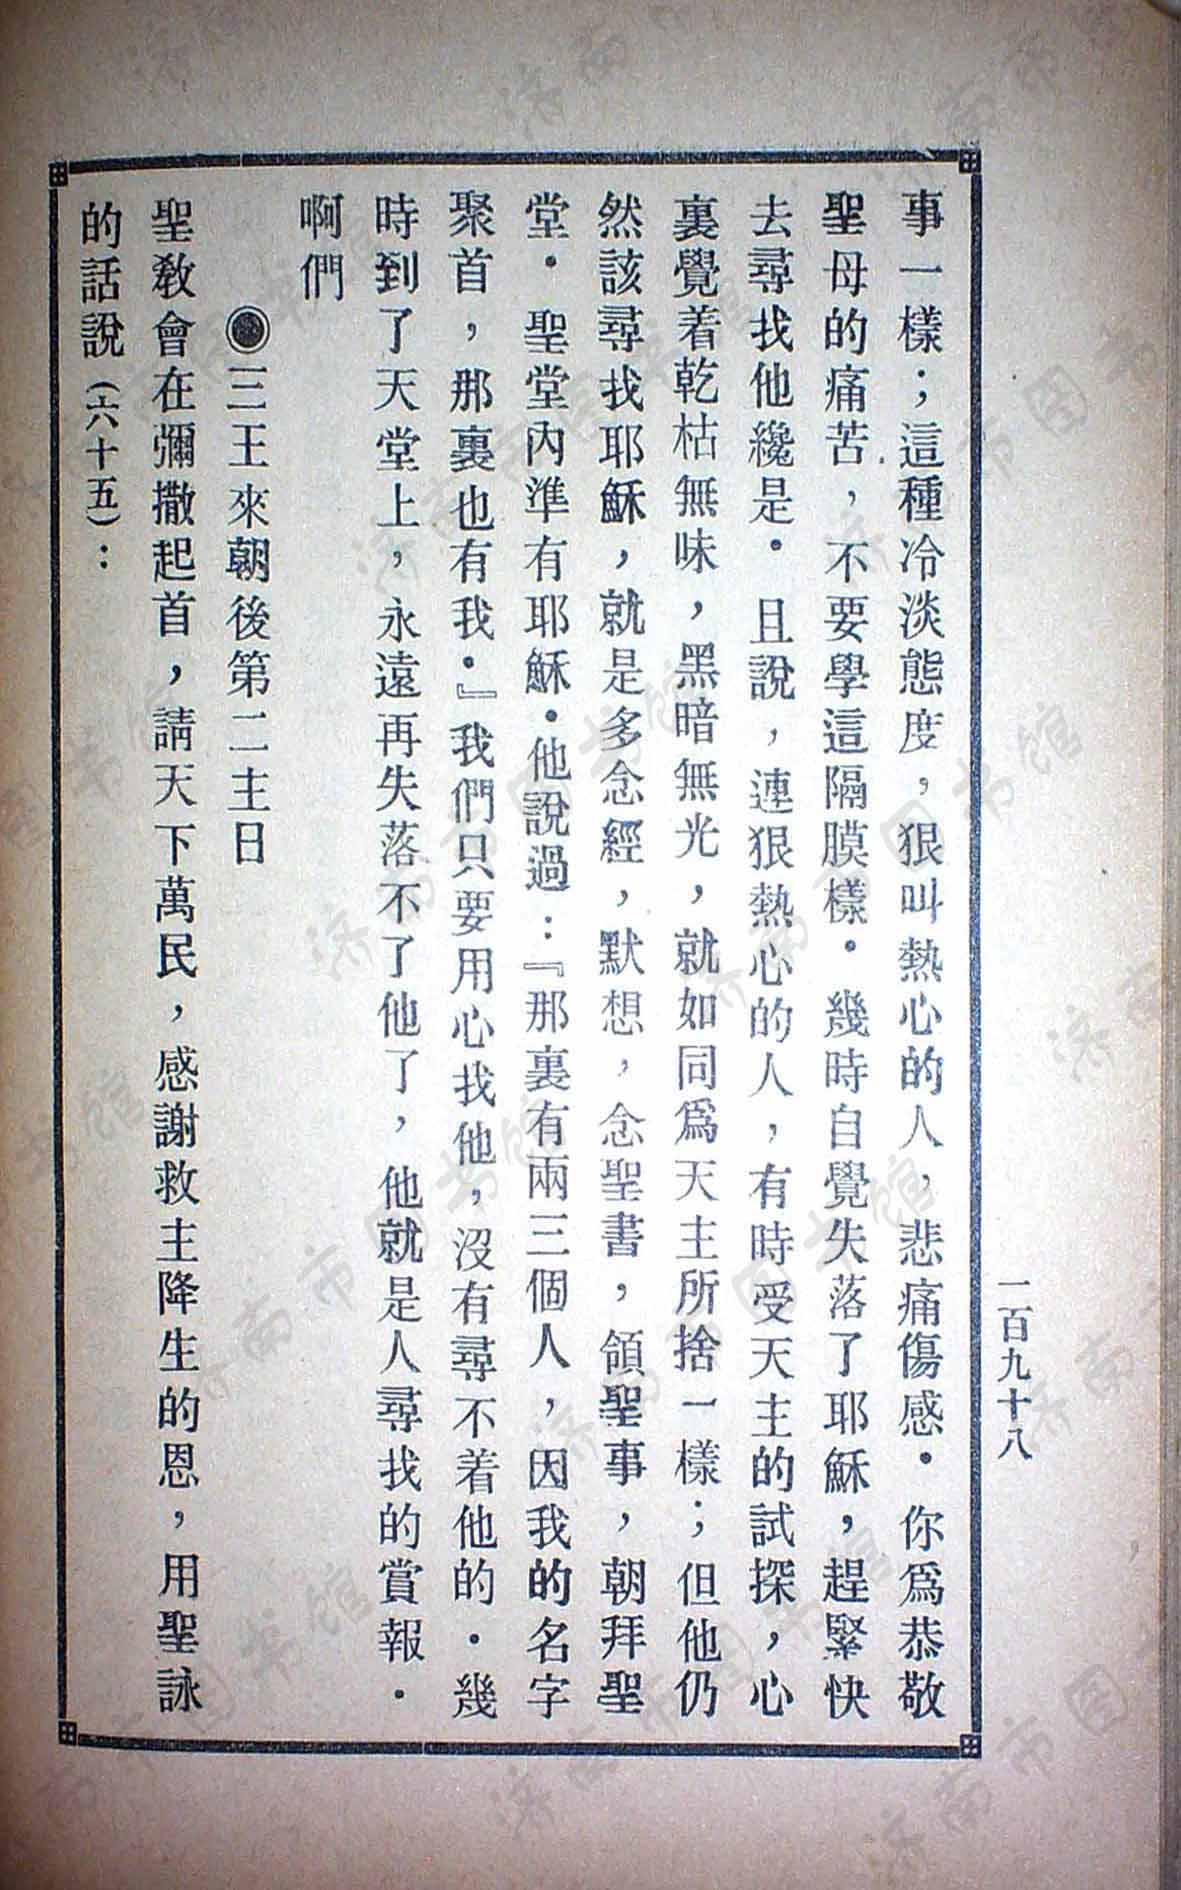 一百九十八
事一樣；這種冷淡態度，狠叫熱心的人，悲痛傷感．你爲恭敬
聖母的痛苦，不要學這隔膜樣．幾時自覺失落了耶穌，趕緊快
去尋找他纔是．且說，連狠熱心的人，有時受天主的試探，心
裏覺着乾枯無味，黑暗無光，就如同爲天主所捨一樣；但他仍
然該尋找耶穌，就是多念經，默想，念聖書，領聖事，朝拜聖
堂．聖堂內準有耶穌．他說過：『那裏有兩三個人，因我的名字
聚首，那裏也有我．』我們只要用心找他，沒有尋不着他的．幾
時到了天堂上，永遠再失落不了他了，他就是人尋找的賞報．
啊們
◉三王來朝後第二主日
聖教會在彌撒起首，請天下萬民，感謝救主降生的恩，用聖詠
的話說（六十五）：
济南市图书馆